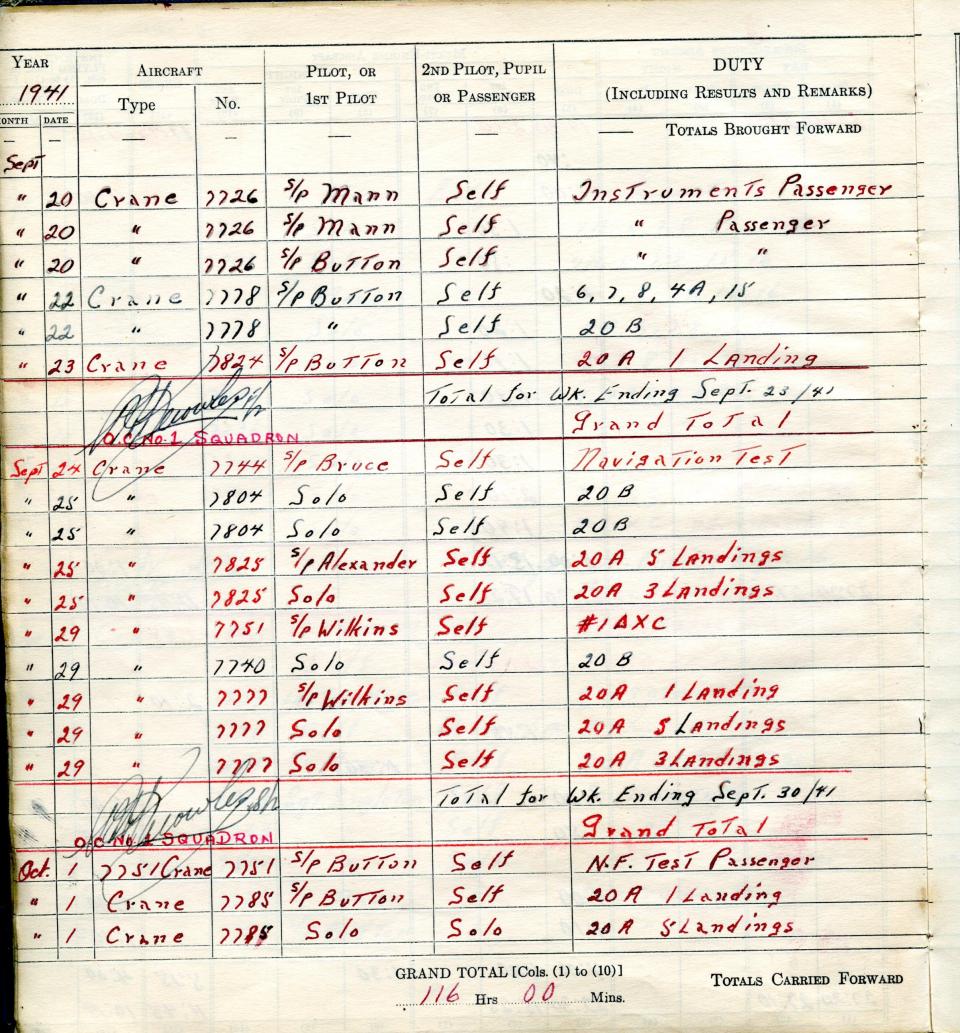 YEAR AIRCRAFT PILOT, OR 2ND PILOT, PUPIL DUTY
1941 Type No. 1ST PILOT OR PASSENGER (INCLUDING RESULTS AND REMARKS)
ONTH DATE
— — — — — — — TOTALS BROUGHT FORWARD
Sept
" 20 Crane 7726 S/P Mann Self Instruments Passenger
" 20 " 7726 S/P Mann Self " Passenger
" 20 " 7726 S/P Button Self " "
" 22 Crane 7778 S/P Button Self 6, 7, 8, 4A, 15
" 22 " 7778 " Self 20 B
" 23 Crane 7824 S/P Button Self 20 A 1 Landing
Total for Wk. Ending Sept. 23/41
Grand Total
O.C. No. 1 SQUADRON
Sept 24 Crane 7744 S/P Bruce Self Navigation Test
" 25 " 7804 Solo Self 20 B
" 25 " 7804 Solo Self 20 B
" 25 " 7825 S/P Alexander Self 20 A 5 Landings
" 25 " 7825 Solo Self 20 A 3 Landings
" 29 " 7751 S/P Wilkins Self #1 AXC
" 29 " 7740 Solo Self 20 B
" 29 " 7777 S/P Wilkins Self 20 A 1 Landing
" 29 " 7777 Solo Self 20 A 5 Landings
" 29 " 7777 Solo Self 20 A 3 Landings
Total for Wk. Ending Sept. 30/41
Grand Total
O.C. No. 1 SQUADRON
Oct. 1 7751 Crane 7751 S/P Button Self N.F. Test Passenger
" 1 Crane 7785 S/P Button Self 20 A 1 Landing
" 1 Crane 7785 Solo Solo 20 A 5 Landings
GRAND TOTAL [Cols. (1) to (10)] TOTALS CARRIED FORWARD
116 Hrs 00 Mins.